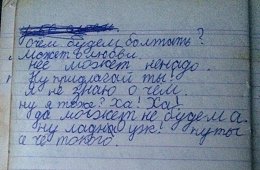 очем будем болтать?
Может о любви.
нее может ненадо.
Ну придлагай ты!
Я не знаю о чём.
ну я тоже? Ха! Ха!
да может не будем а.
ну ладна уж. путы
а че токого.